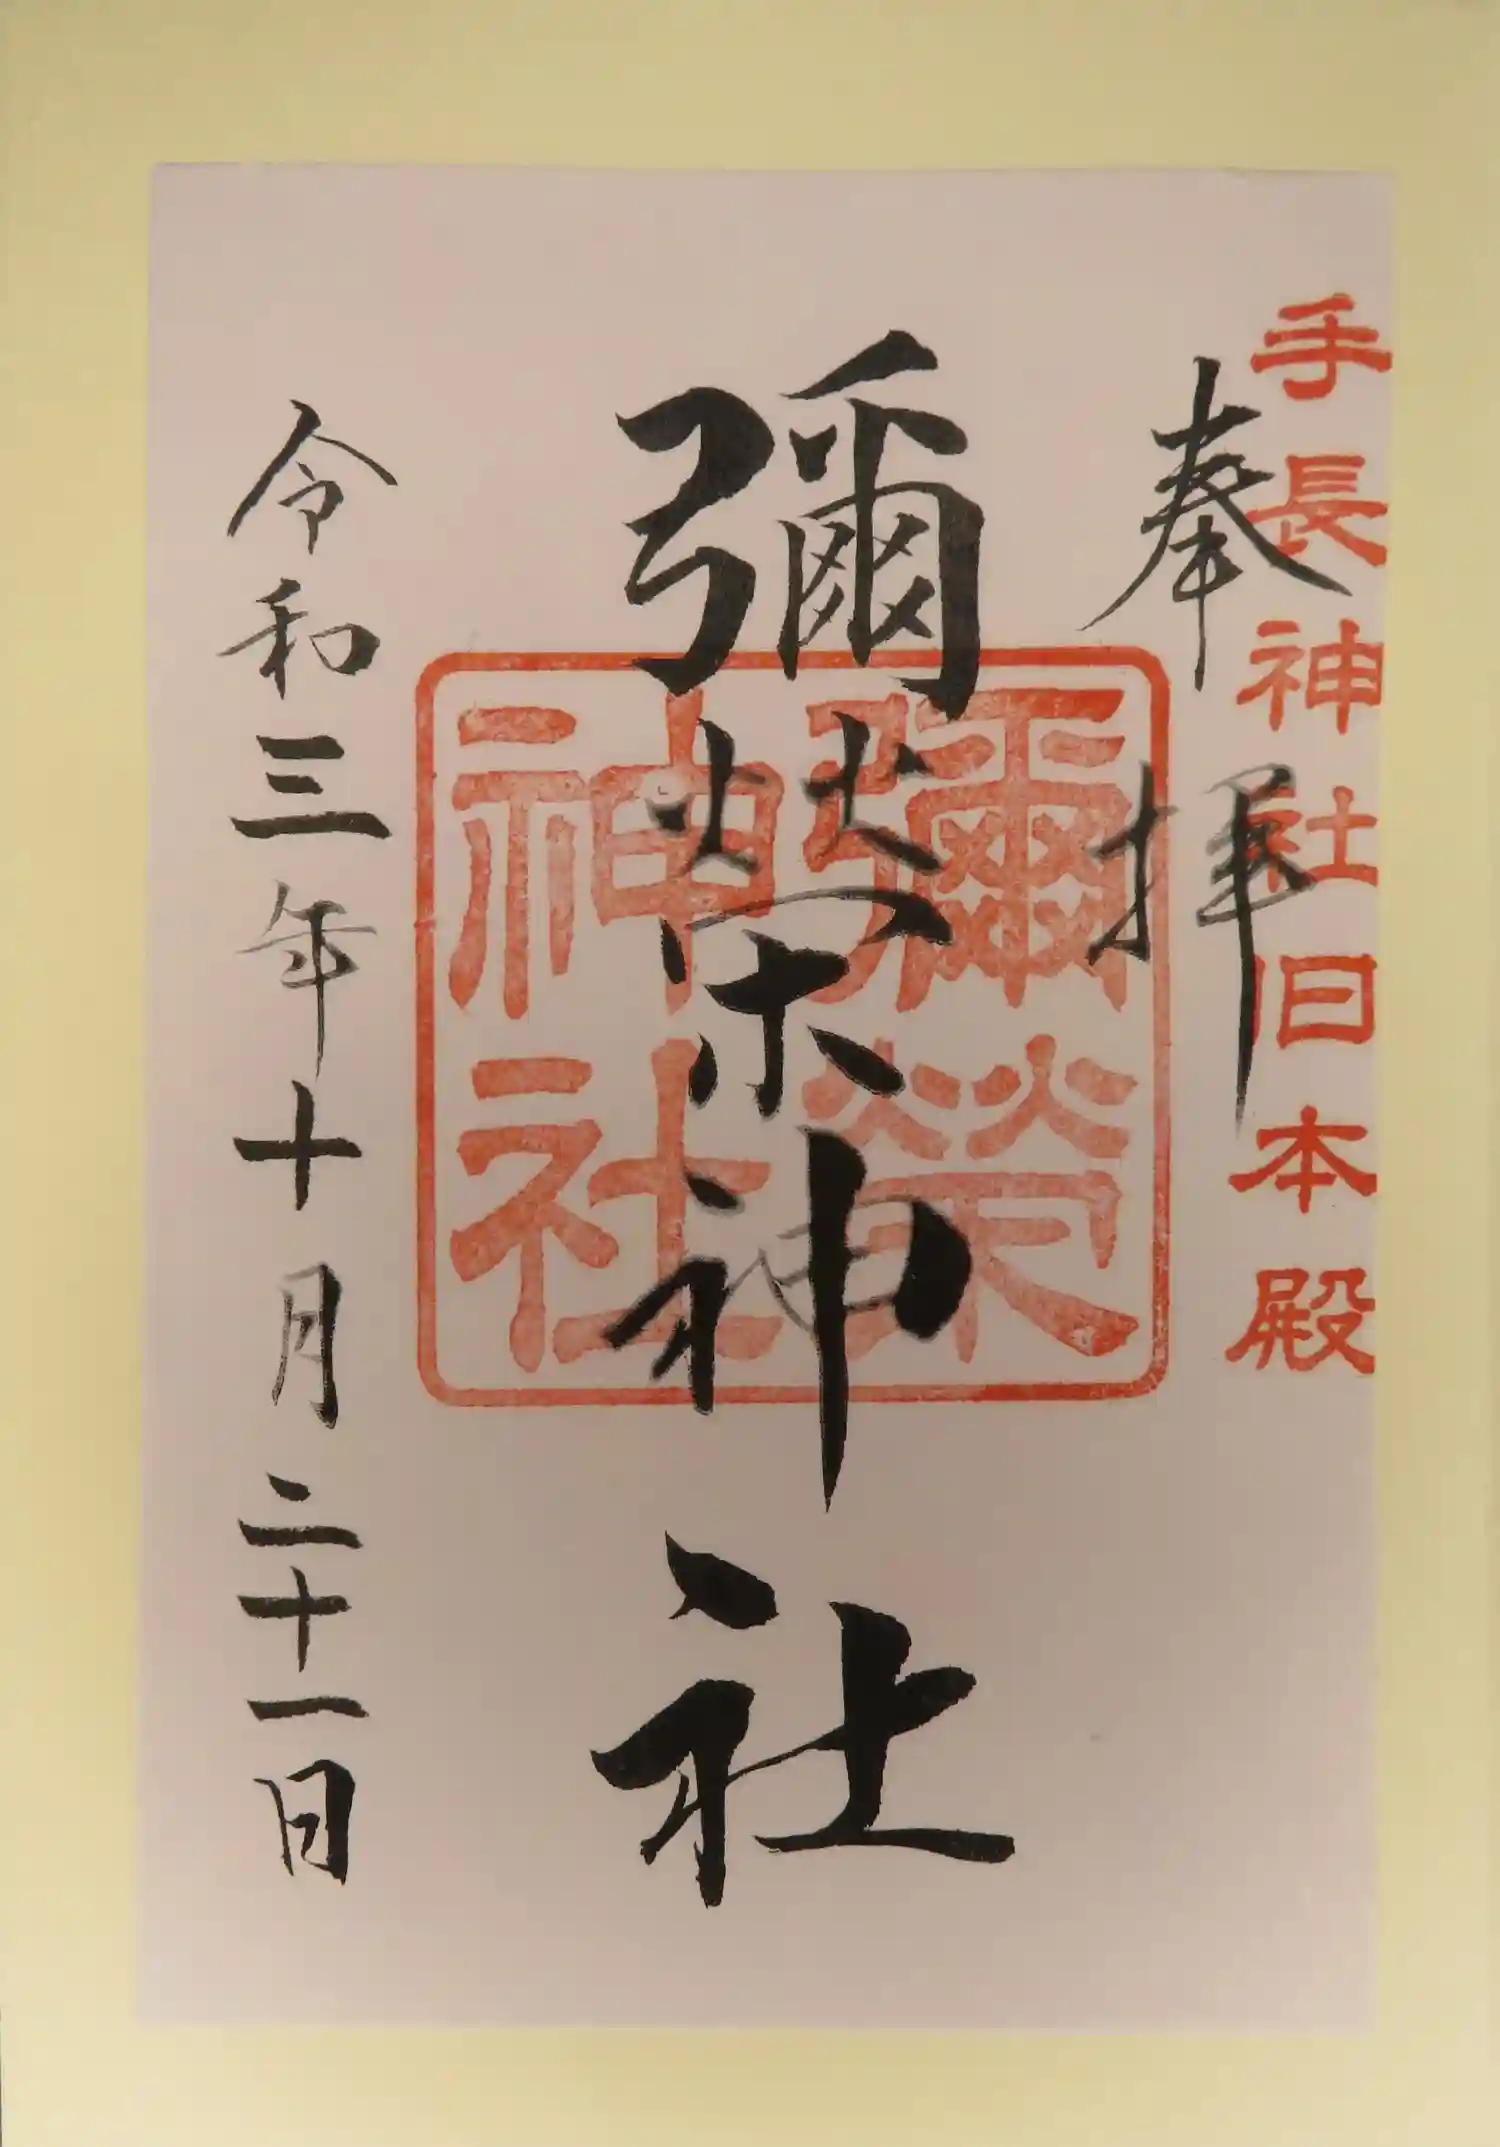 手長神社旧本殿
奉拝
彌榮神社
彌榮
神社
令和三年十月二十一日